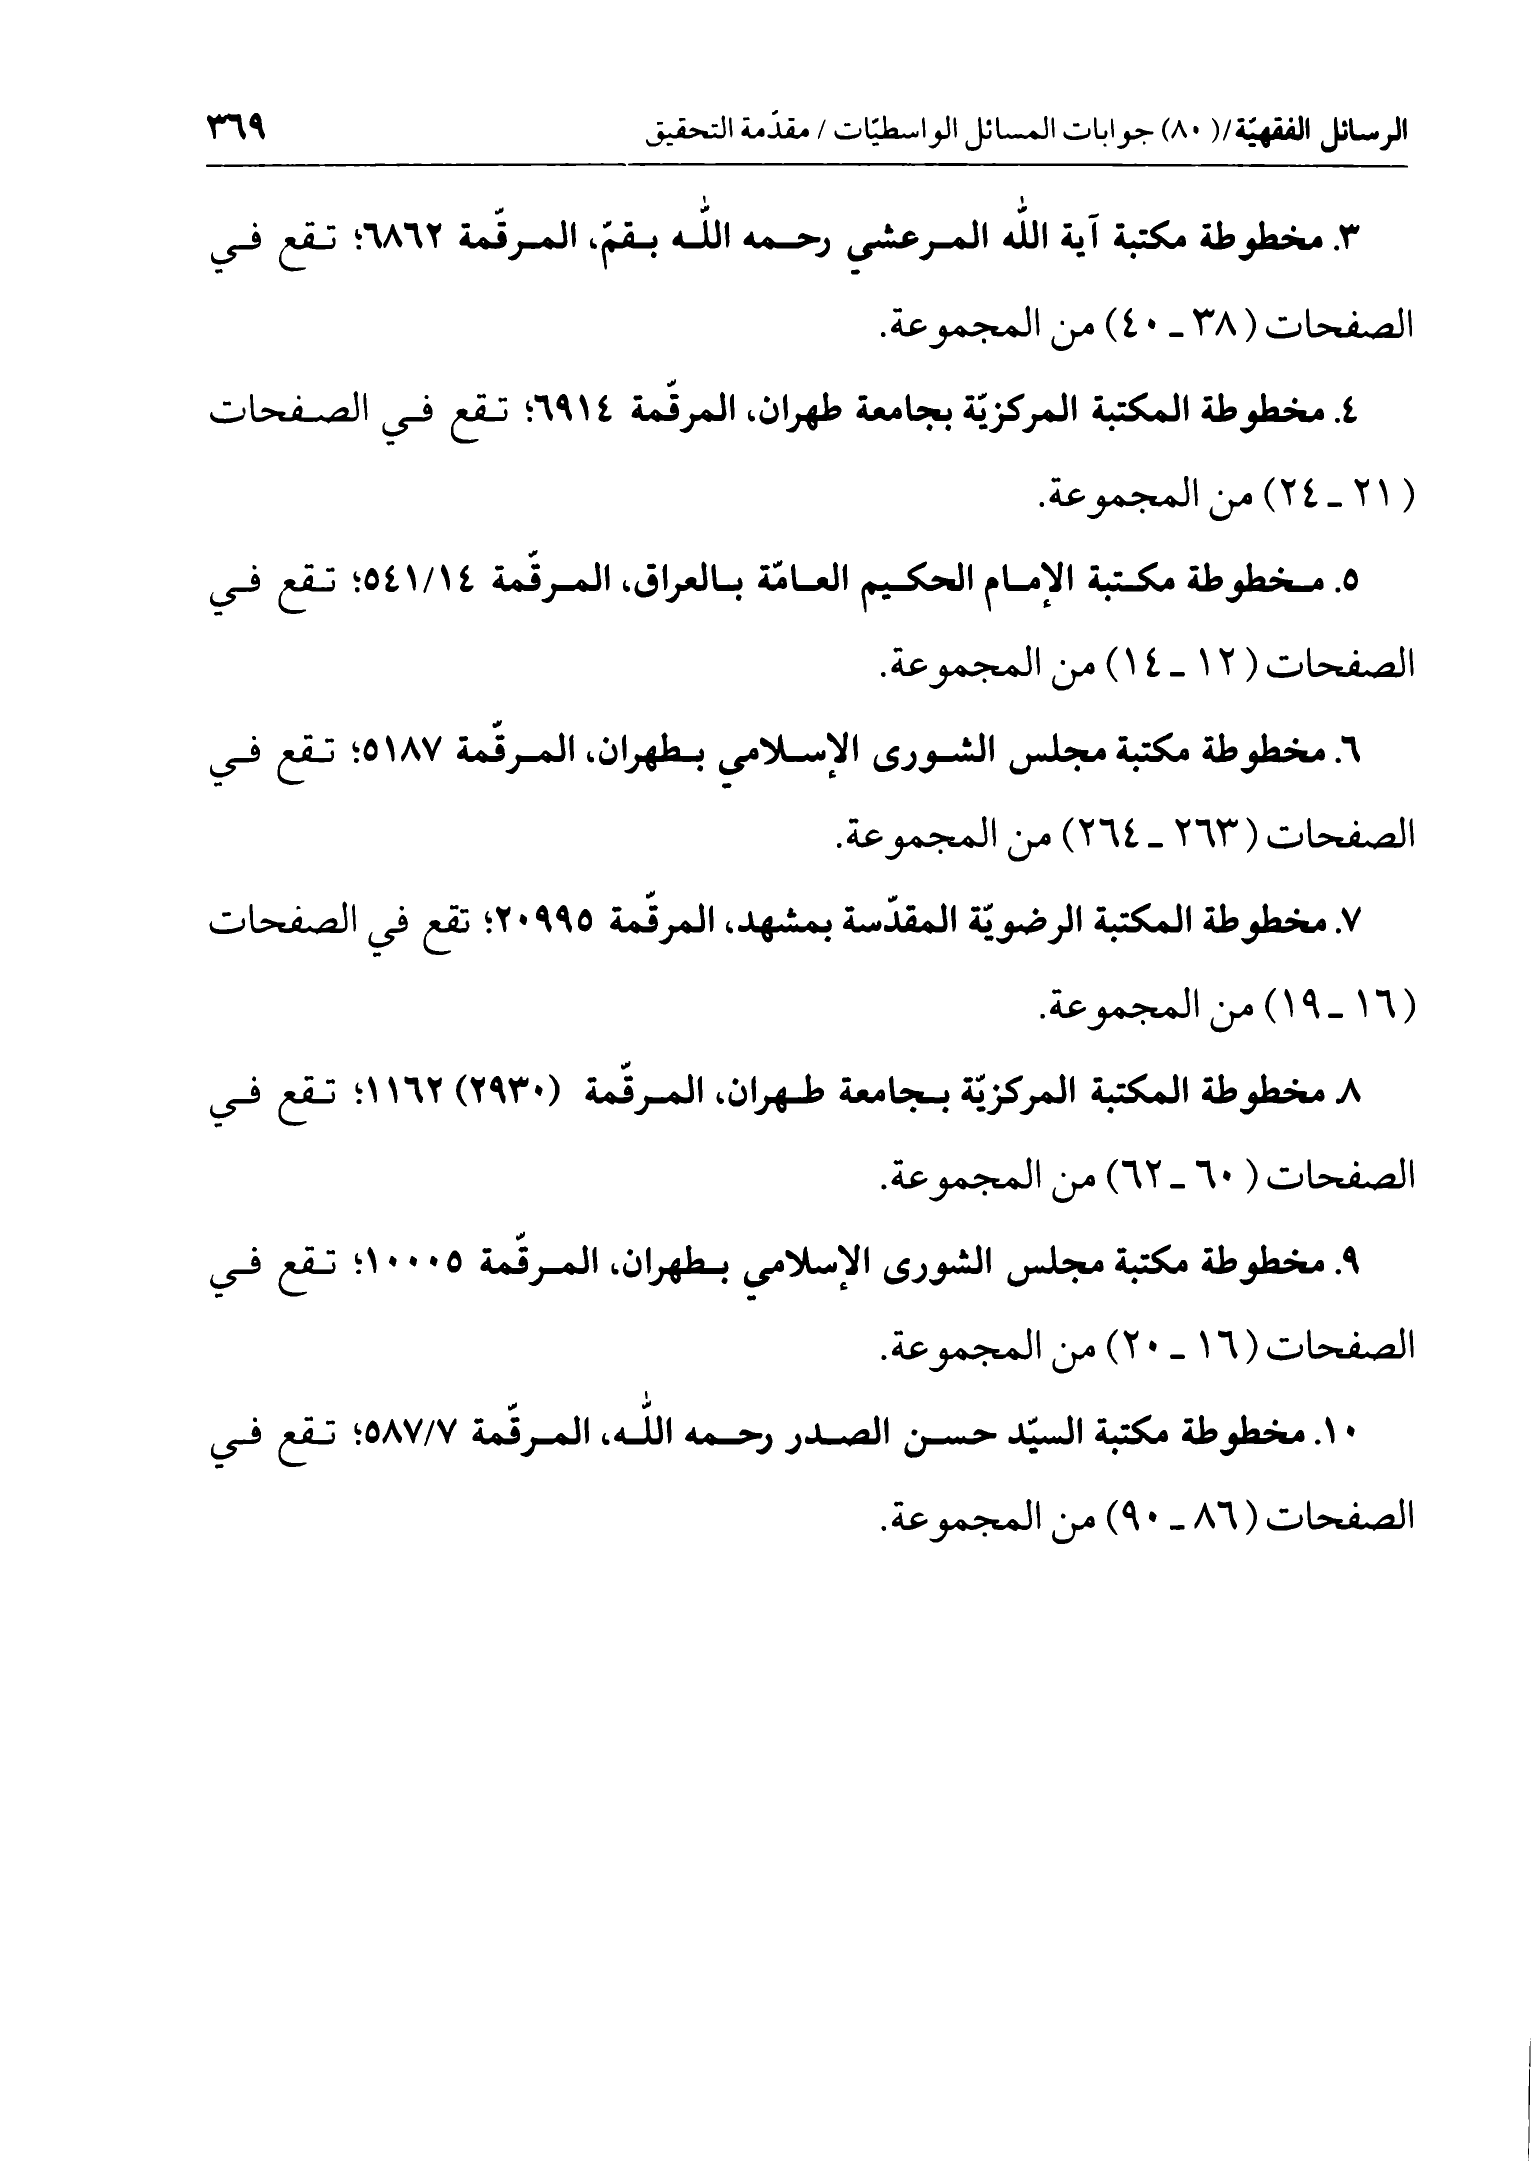 الرسائل الفقهيّة/(٨٠) جوابات المسائل الواسطيّات / مقدّمة التحقيق ٣٦٩
٣. مخطوطة مكتبة آية اللّٰه المرعشي رحمه اللّٰه بقمّ، المرقّمة ٦٨٦٢؛ تقع في
الصفحات (٣٨ ـ ٤٠) من المجموعة.
٤. مخطوطة المكتبة المركزيّة بجامعة طهران، المرقّمة ٦٩١٤؛ تقع في الصفحات
(٢١ ـ ٢٤) من المجموعة.
٥. مخطوطة مكتبة الإمام الحكيم العامّة بالعراق، المرقّمة ٥٤١/١٤؛ تقع في
الصفحات (١٢ ـ ١٤) من المجموعة.
٦. مخطوطة مكتبة مجلس الشورى الإسلامي بطهران، المرقّمة ٥١٨٧؛ تقع في
الصفحات (٢٦٣ ـ ٢٦٤) من المجموعة.
٧. مخطوطة المكتبة الرضويّة المقدّسة بمشهد، المرقّمة ٢٠٩٩٥؛ تقع في الصفحات
(١٦ ـ ١٩) من المجموعة.
٨. مخطوطة المكتبة المركزيّة بجامعة طهران، المرقّمة (٢٩٣٠) ١١٦٢؛ تقع في
الصفحات (٦٠ ـ ٦٢) من المجموعة.
٩. مخطوطة مكتبة مجلس الشورى الإسلامي بطهران، المرقّمة ١٠٠٠٥؛ تقع في
الصفحات (١٦ ـ ٢٠) من المجموعة.
١٠. مخطوطة مكتبة السيّد حسن الصدر رحمه اللّٰه، المرقّمة ٥٨٧/٧؛ تقع في
الصفحات (٨٦ ـ ٩٠) من المجموعة.